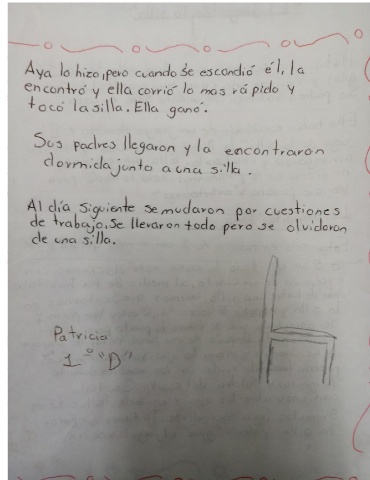 Aya lo hizo, pero cuando se escondió él, la
encontró y ella corrió lo mas rápido y
tocó la silla. Ella ganó.
Sus padres llegaron y la encontraron
dormida junto a una silla.
Al día siguiente se mudaron por cuestiones
de trabajo, se llevaron todo pero se olvidaron
de una silla.
Patricia
1° "D"